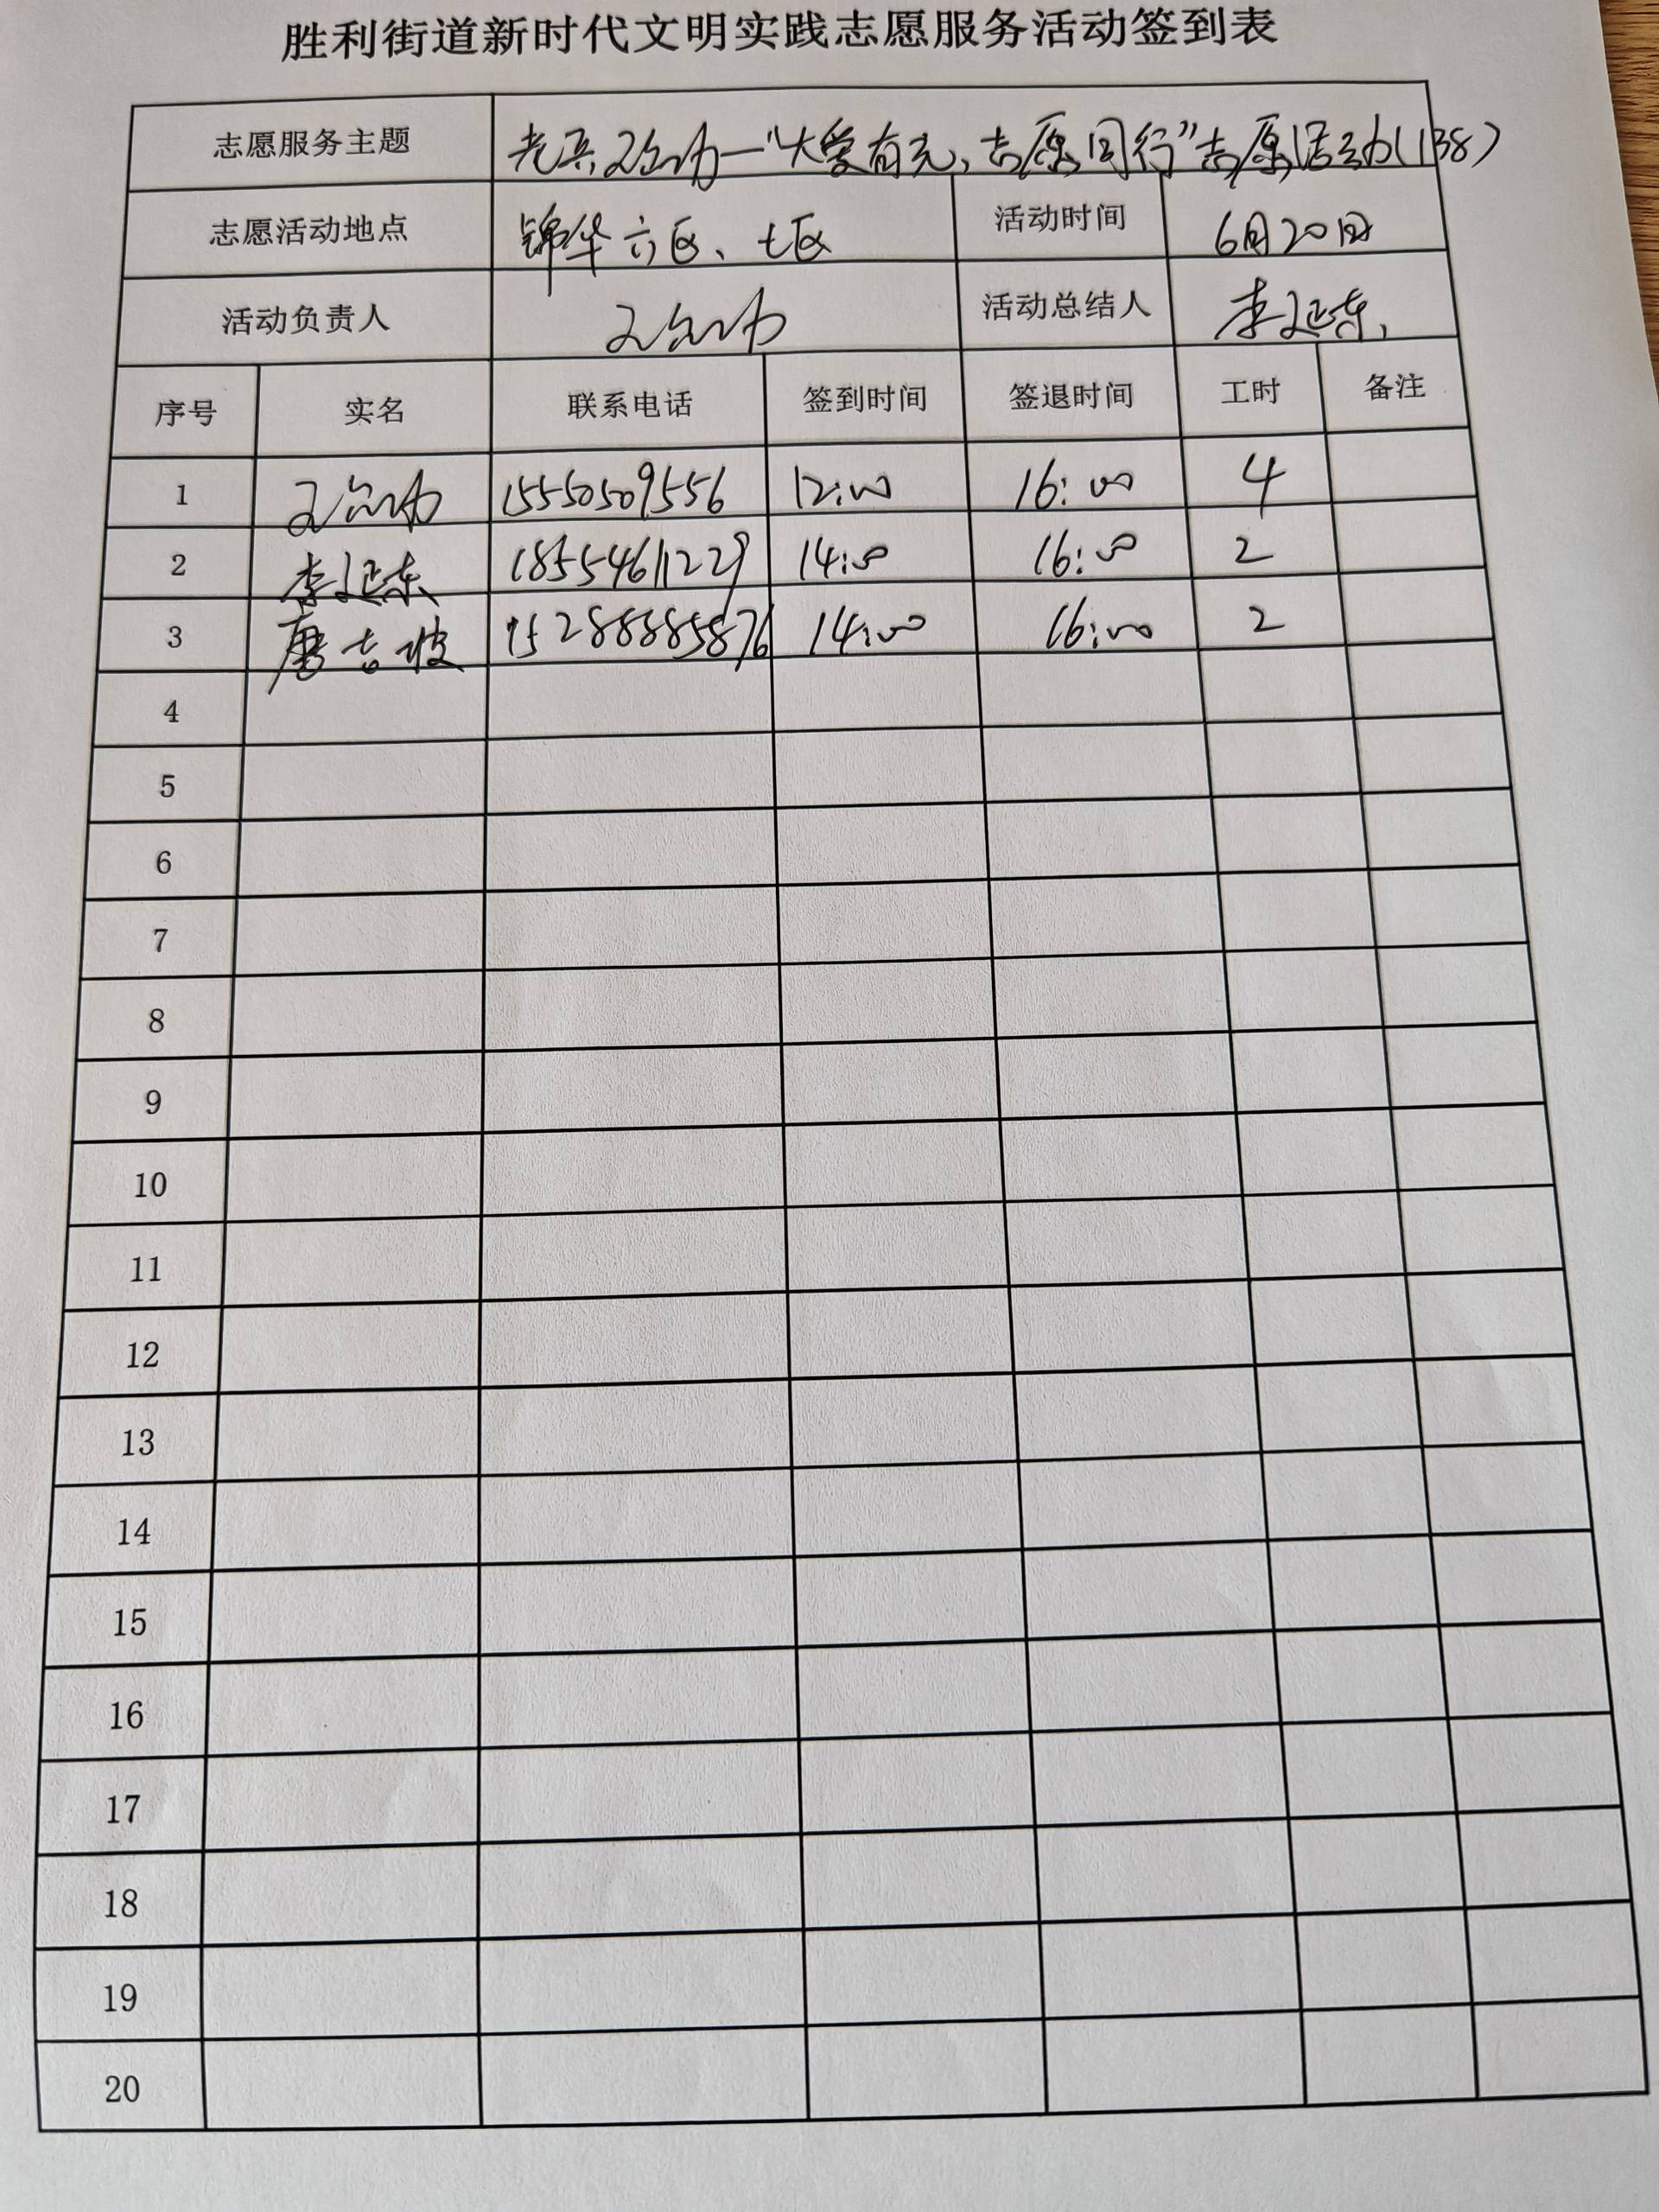 胜利街道新时代文明实践志愿服务活动签到表
志愿服务主题 老兵 一"大爱有光,志愿同行"志愿活动(138)
志愿活动地点 锦华六区、七区 活动时间 6月20日
活动负责人 活动总结人 李延东
序号 实名 联系电话 签到时间 签退时间 工时 备注
1 15550509556 12:00 16:00 4
2 李延东 18554611229 14:00 16:00 2
3 唐志波 15288885876 14:00 16:00 2
4
5
6
7
8
9
10
11
12
13
14
15
16
17
18
19
20